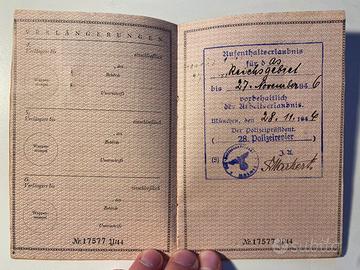 VERLÄNGERUNGEN
1.
Verlängert bis
einschließlich
, den
Behörde
Wappen-stempel
Unterschrift
2.
Verlängert bis
einschließlich
, den
Behörde
Wappen-stempel
Unterschrift
3.
Verlängert bis
einschließlich
, den
Behörde
Wappen-stempel
Unterschrift
Nr. 17577 1/44
Aufenthaltserlaubnis
für das
Reichsgebiet
bis 27. November 194 6
vorbehaltlich
der Arbeitserlaubnis.
München, den 28. 11. 194 4
Der Polizeipräsident
28. Polizeirevier
(S)
J. A.
Nr. 17577 1/44
subito